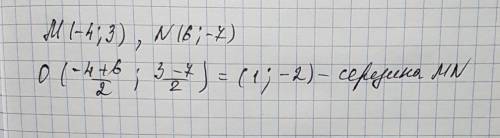 M(-4;3), N(6;-7)
O(\frac{-4+6}{2}; \frac{3-7}{2}) = (1;-2) - середина MN